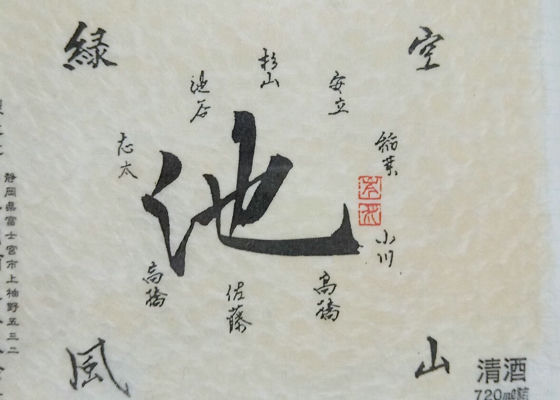 空
山
緑
風
池
安立
杉山
池谷
志太
稲葉
小川
高橋
佐藤
高橋
静岡県富士宮市上柚野五三二
清酒
720ml詰